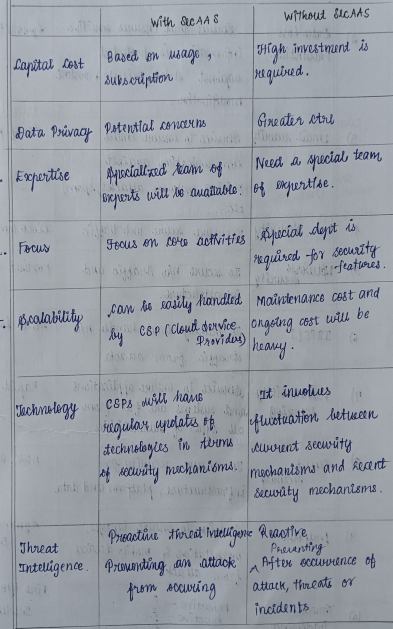 With SECAAS Without SECAAS
Capital Cost
Based on usage,
subscription
High investment is
required.
Data Privacy
Potential concerns
Greater ctrl
Expertise
Specialized team of
experts will be available.
Need a special team
of expertise.
Focus
Focus on core activities
Special dept is
required for security
features.
Scalability
Can be easily handled
by CSP (Cloud Service
Providers)
Maintenance cost and
ongoing cost will be
heavy.
Technology
CSPs will have
regular updates of
technologies in terms
of security mechanisms.
It involves
fluctuation between
current security
mechanisms and recent
security mechanisms.
Threat
Intelligence.
Proactive threat Intelligence
Preventing an attack
from occuring
Reactive
Preventing
After occurrence of
attack, threats or
incidents